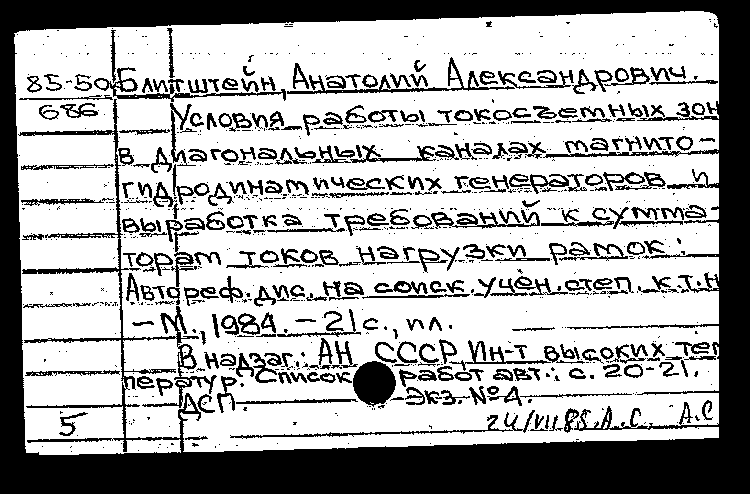 85-50 Блитштейн, Анатолий Александрович.
686 Условия работы токосъемных зон
в диагональных каналах магнито-
гидродинамических генераторов и
выработка требований к сумма-
торам токов нагрузки рамок:
Автореф. дис. на соиск. учен. степ. к.т.н
- М., 1984. - 21 с., ил.
В надзаг.: АН СССР, Ин-т высоких тем
ператур. Список работ авт.: с. 20-21.
ДСП. Экз. № 4.
5 24/VII 85. А.С. А.С